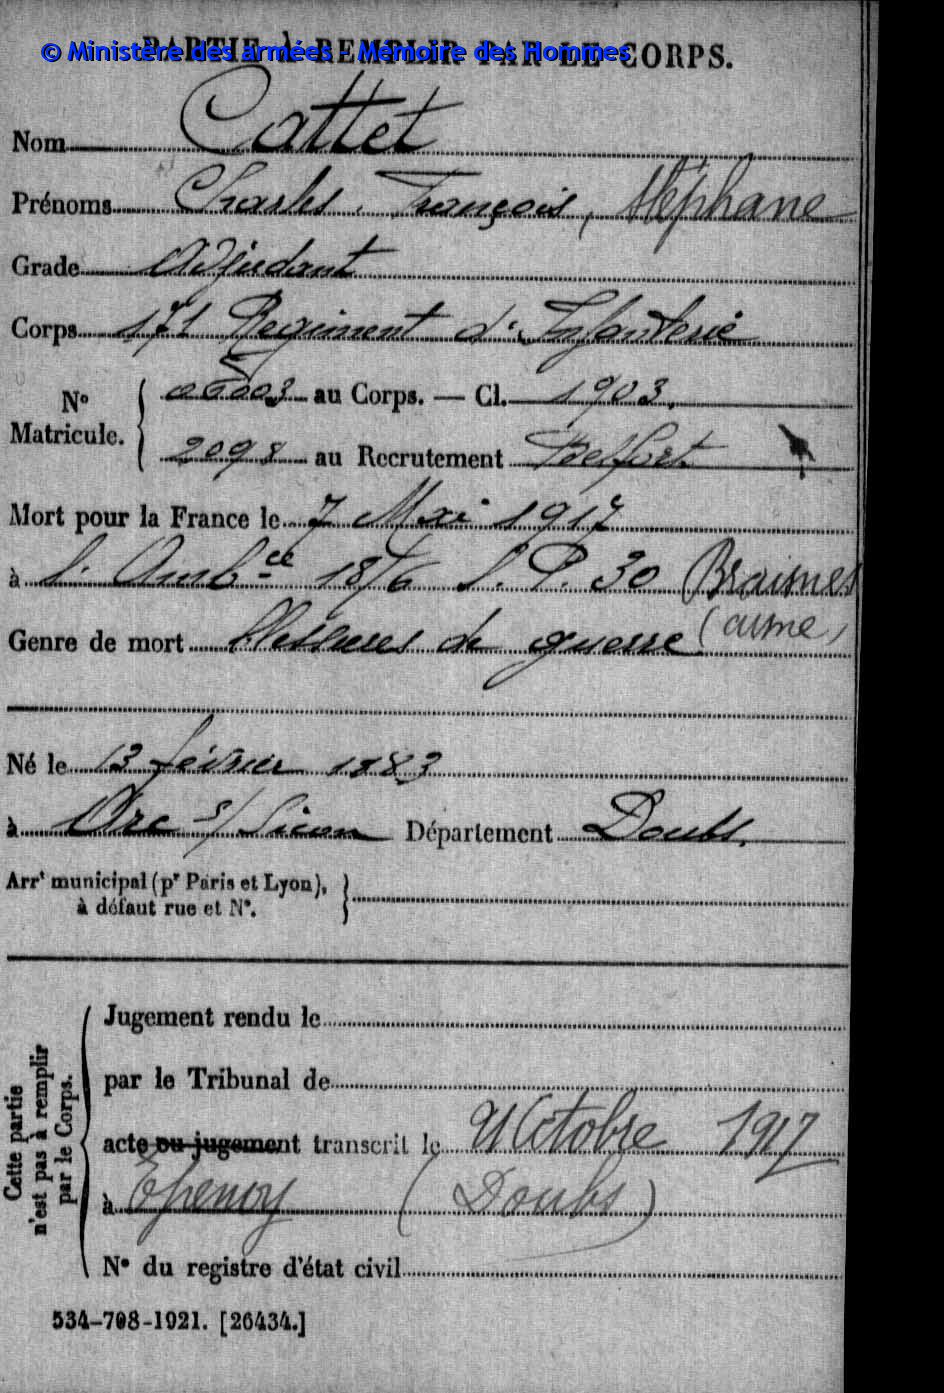 PARTIE À REMPLIR PAR LE CORPS.
© Ministère des armées - Mémoire des Hommes
Nom Cattet
Prénoms Charles, François, Stéphane
Grade Adjudant
Corps 171 Régiment d'Infanterie
N° Matricule. au Corps. — Cl. 1903.
2098 au Recrutement Belfort
Mort pour la France le 7 Mai 1917
à l'Amb.ce 18/6 S. P. 30 Braisnes
(aisne)
Genre de mort Blessures de guerre
Né le 13 février 1883
à Arc s/ Cicon Département Doubs.
Arrt municipal (pr Paris et Lyon),
à défaut rue et N°.
Cette partie n'est pas à remplir par le Corps.
Jugement rendu le
par le Tribunal de
acte ou jugement transcrit le Octobre 1917
à Epenoy (Doubs)
N° du registre d'état civil
534-708-1921. [26434.]